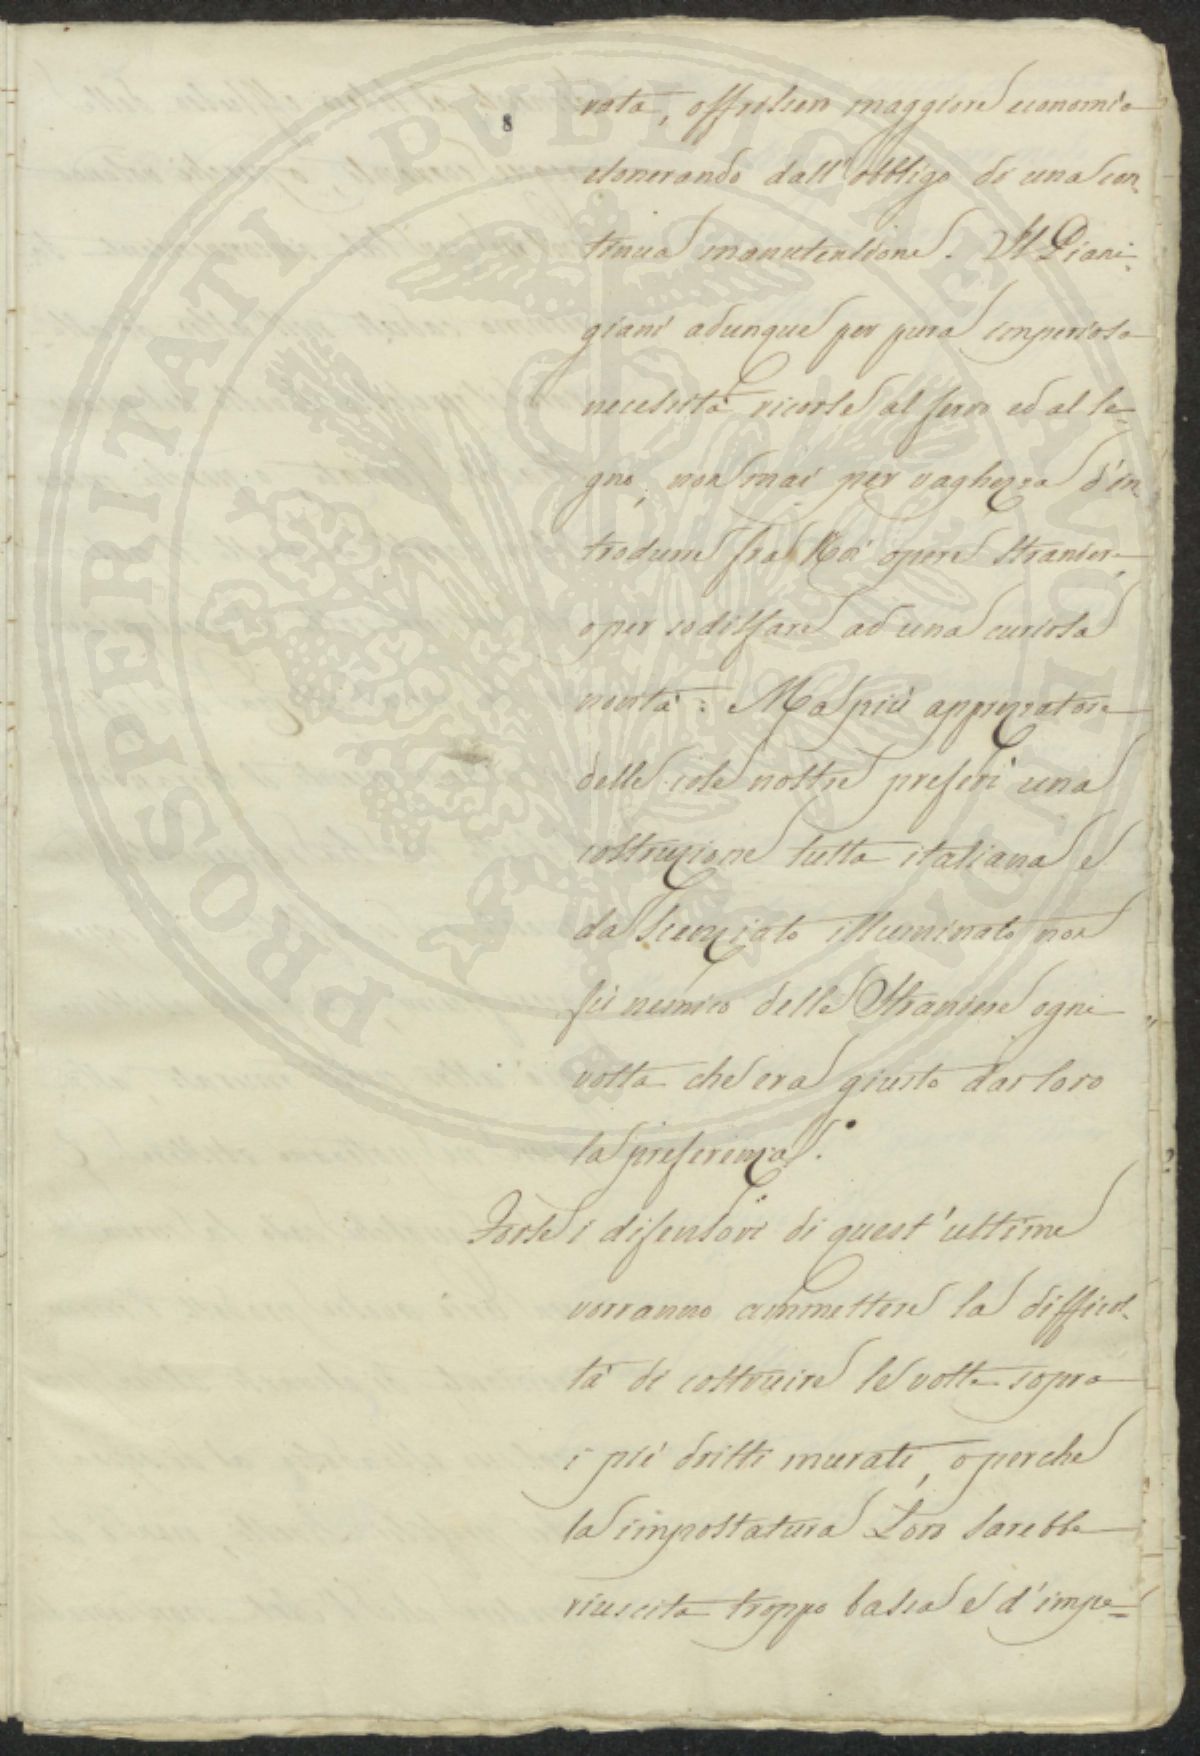 8
rata, offrisson maggiore economia
esonerando dall'obbligo di una con-
tinua manutensione. Il Piani-
giani adunque per pura imperiosa
necessità ricorse al ferro ed al le-
gno, non mai per vaghezza d'in-
trodurre fra Noi opere straniere,
o per sodisfare ad una curiosa
novità: Ma più apprezzatore
delle cose nostre preferì una
costruzione tutta italiana e
da Scenziato illuminato non
fù nemico delle Straniere ogni
volta che era giusto dar loro
la preferenza.
Forse i difensori di quest'ultime
vorranno ammettere la difficol-
tà di costruire le volte sopra
i piè dritti murati, o perche
la impostatura Loro sarebbe
riuscita troppo bassa e d'impe-
PROSPERITATI PUBLICAE AUGENDAE